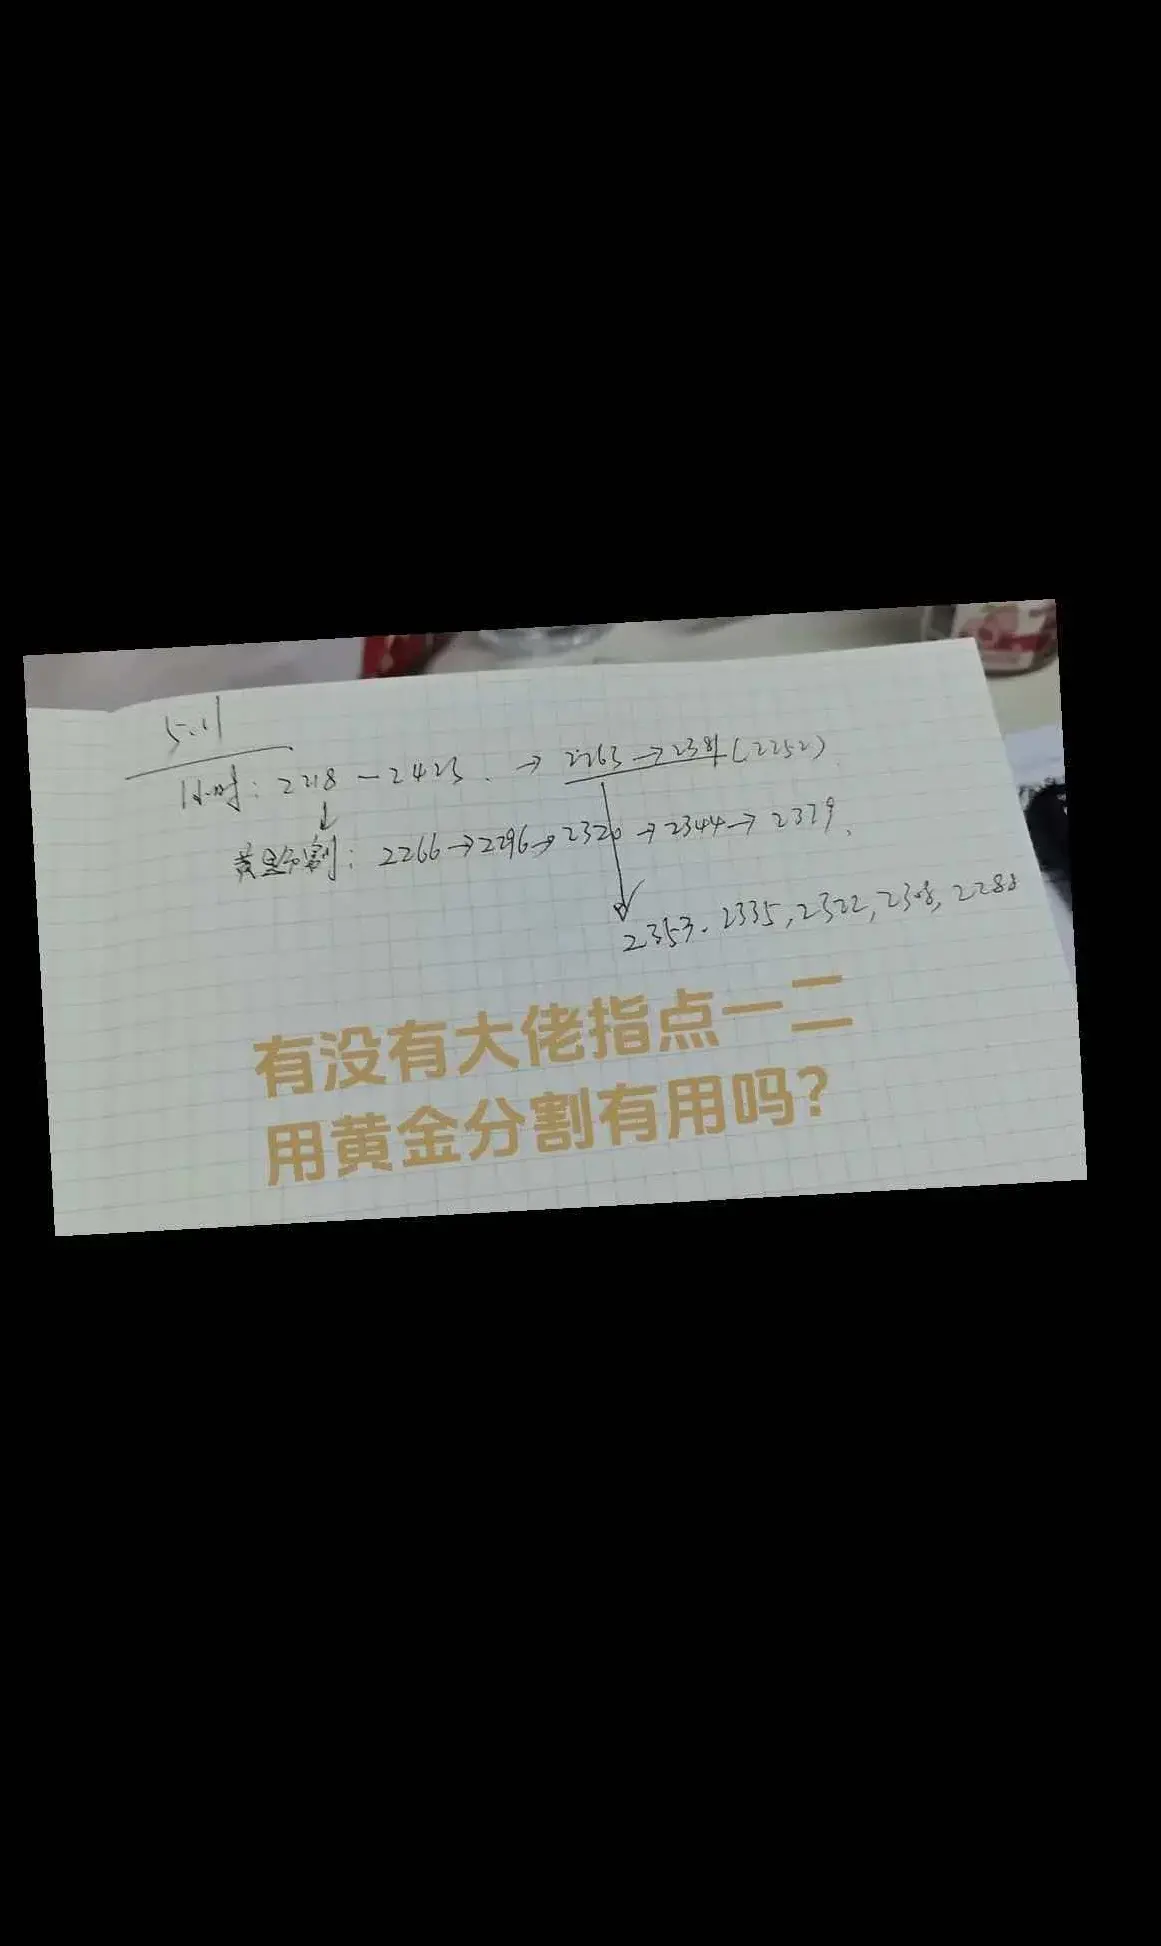 5.11
1小时: 2218 - 2423. → 2263 → 2381 (2252)
↓
黄金分割: 2266 → 2296 → 2320 → 2344 → 2379.
2353. 2335, 2322, 2308, 2288
有没有大佬指点一二
用黄金分割有用吗?